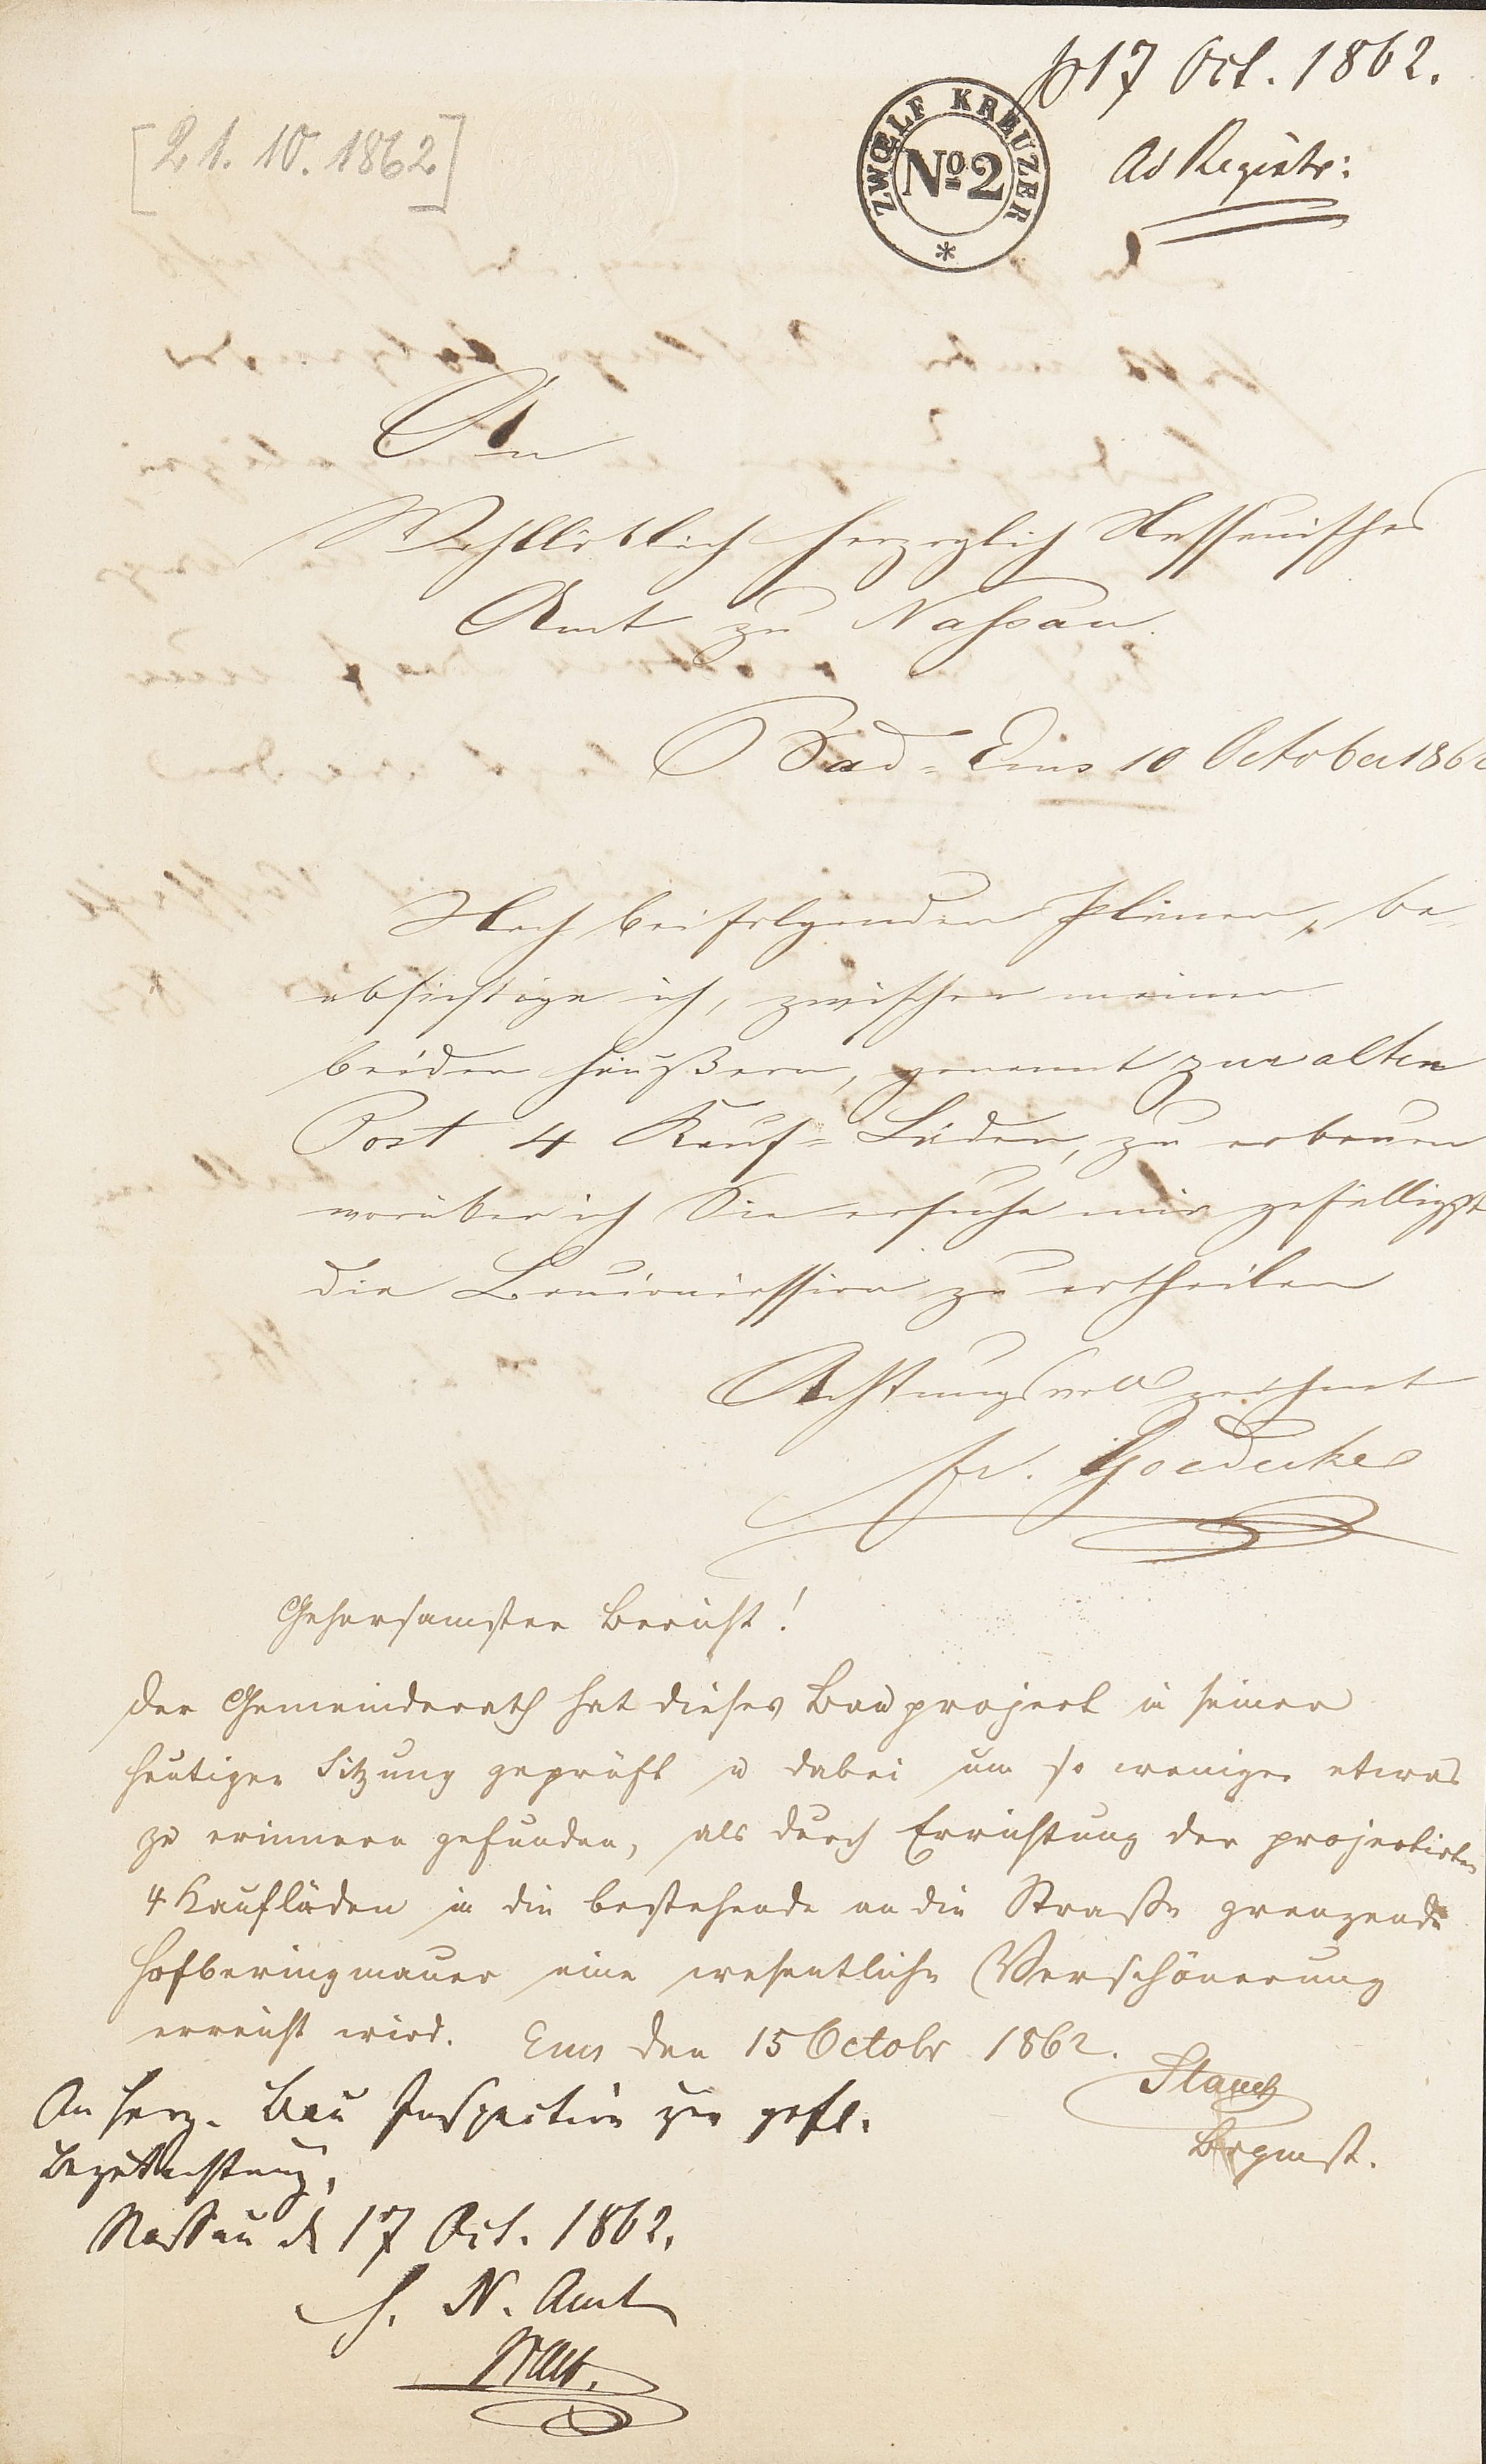 p 17 Oct. 1862.
[21. 10. 1862]
ZWŒLF KREUZER
No 2
Ad Registr:
An
Wohllöblich Herzoglich Nassauisches
Amt zu Nassau.
Bad-Ems 10 October 1862
Nach beifolgenden Plänen, be-
absichtige ich, zwischen meinen
beiden Häußern, genannt zur alten
Post 4 Kauf-Läden, zu erbauen
worüber ich Sie ersuche mir gefälligst
die Bauconcession zu ertheilen
Achtungsvoll zeichnet
Fr. Goedecke
Gehorsamster Bericht!
Der Gemeinderath hat dieses Bauproject in seiner
heutigen Sitzung geprüft u dabei um so weniger etwas
zu erinnern gefunden, als durch Errichtung der projectirten
4 Kaufläden in die bestehende an die Straße grenzende
Hofberingmauer eine wesentliche Verschönerung
erreicht wird. Ems den 15 Octobr 1862.
Brgmst.
An Herz. Bau Inspection zur gefl.
Begutachtung.
Nassau d 17 Oct. 1862.
H. N. Amt